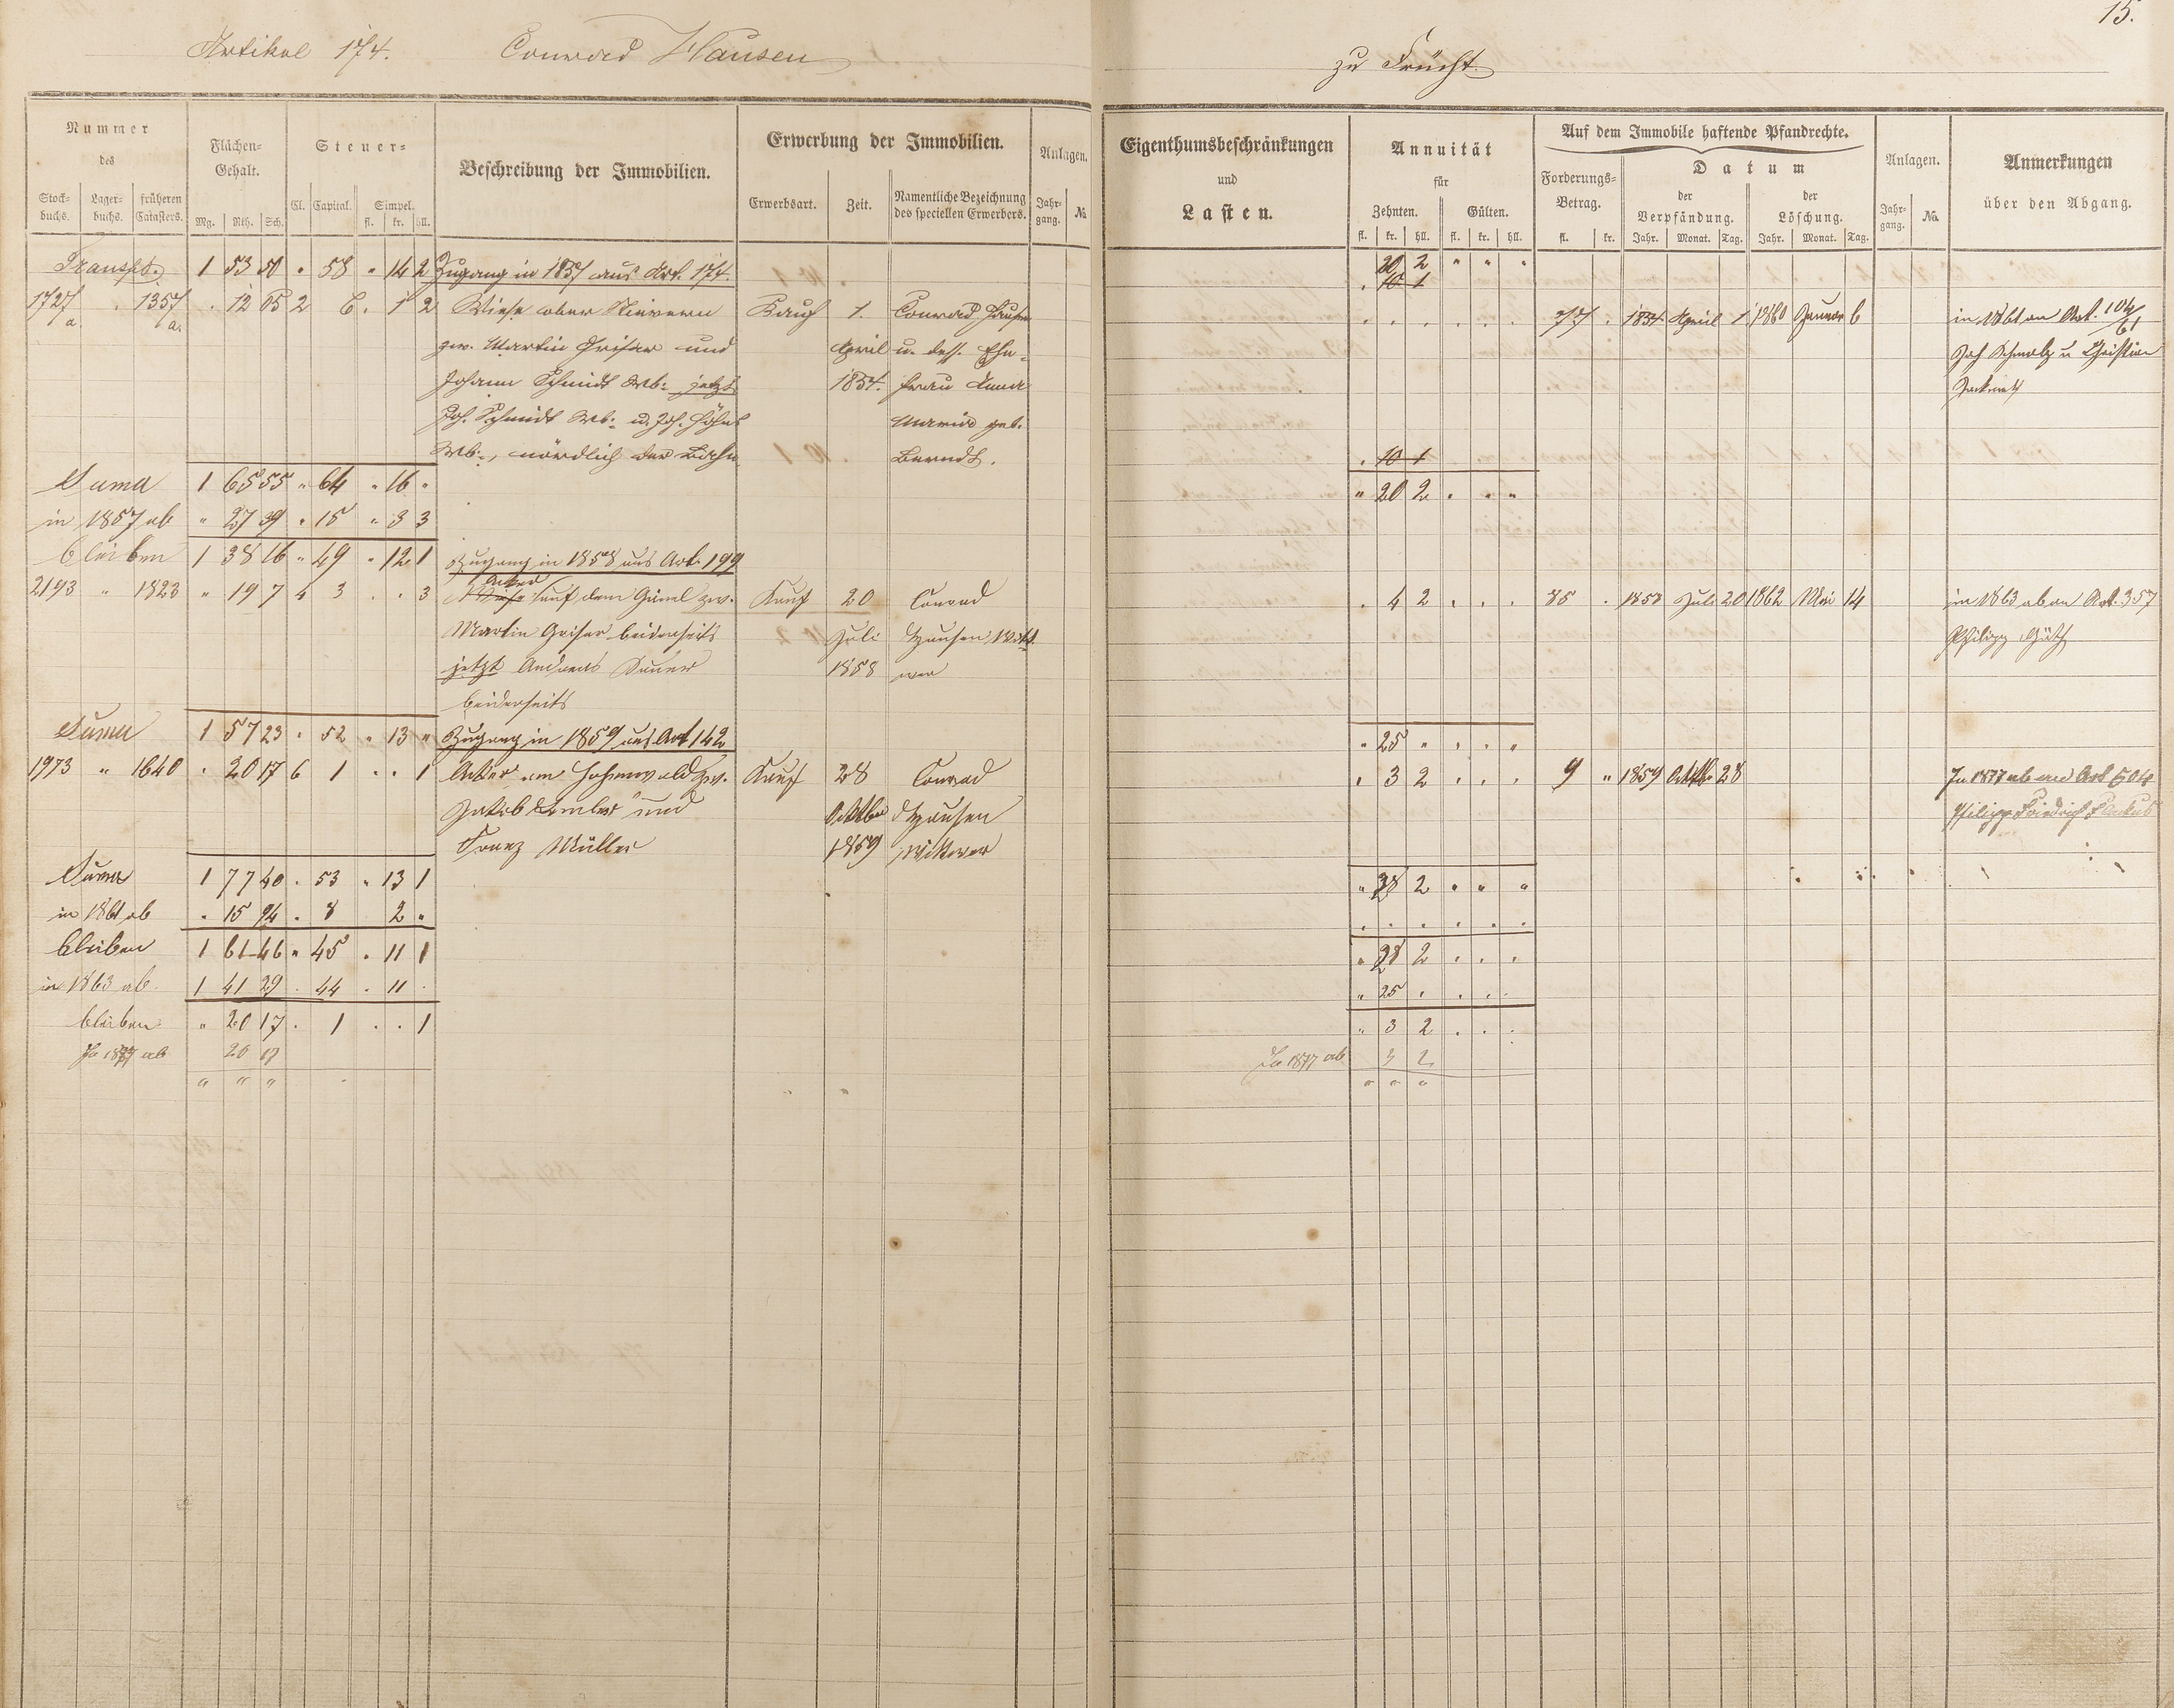 15.
Artikel 174. Conrad Hausen zu Frücht
Nummer des
Stock-buchs. Lager-buchs. früheren Catasters.
Flächen-Gehalt.
Mg. Rth. Sch.
Steuer-
Cl. Capital. Simpel. fl. kr. hll.
Beschreibung der Immobilien.
Erwerbung der Immobilien.
Erwerbsart. Zeit. Namentliche Bezeichnung des speciellen Erwerbers.
Anlagen.
Jahr-gang. No.
Eigenthumsbeschränkungen
und
Lasten.
Annuität
für
Zehnten. Gülten.
fl. kr. hll. fl. kr. hll.
Auf dem Immobile haftende Pfandrechte.
Forderungs-Betrag.
fl. kr.
Datum
der Verpfändung. der Löschung.
Jahr. Monat. Tag. Jahr. Monat. Tag.
Anlagen.
Jahr-gang. No.
Anmerkungen
über den Abgang.
Transpt. 1 53 50 " 58 " 14 2 Zugang in 1857 aus Art. 174. 20 2 " " "
. 10 1
1727 a. . 1357 a. . 12 05 2 6 . 1 2 Wiese ober Nievern Kauf 1. Conrad Hausen 77 . 1854 April 1 1860 Januar 6 in 1861 an Art. 104/61
zw. Martin Grisar und April u. dess. Ehe-
Johann Schmidt Wb: jetzt 1854. frau Anna
Joh. Schmidt Wb: u. Joh. Maria geb.
Wb:, nördlich der Lahn Berndt. . 10 1
Suma 1 65 55 " 64 " 16 " " 20 2 . " "
in 1857 ab " 27 39 " 15 " 3 3
bleiben 1 38 16 " 49 " 12 1 Zugang in 1858 aus Art. 199
Acker
2193 " 1823 " 19 7 4 3 . . 3 Wiese auf dem zw. Kauf 20 Conrad . 4 2 . . . 85 . 1858 Juli 20 1862 Mai 14 in 1863 ab an Art. 357
Martin Grisar beiderseits Juli Hausen Witt Philipp Güth
jetzt Andreas Sauer 1858 wer
beiderseits
Suma 1 57 23 " 52 " 13 " Zugang in 1859 aus Art 142 " 25 " . . "
1973 " 1640 . 20 17 6 1 . . 1 Acker am Hohenwald zw. Kauf 28 Conrad . 3 2 . . . 9 " 1859 Oktbr 28 In 1877 ab an Art 504
Jakob und Oktber Hausen Philipp Friedrich
Franz Müller 1859 Wittwer
Suma 1 77 40 . 53 " 13 1 " 28 2 " " "
in 1861 ab . 15 94 . 8 2 " . . . . . .
bleiben 1 61 46 " 45 . 11 1 " 28 2 . . .
in 1863 ab 1 41 29 . 44 . 11 . " 25 . . . .
bleiben " 20 17 . 1 . . 1 " 3 2 . . .
In 1877 ab 20 17 In 1877 ab 3 2
" " " " " "